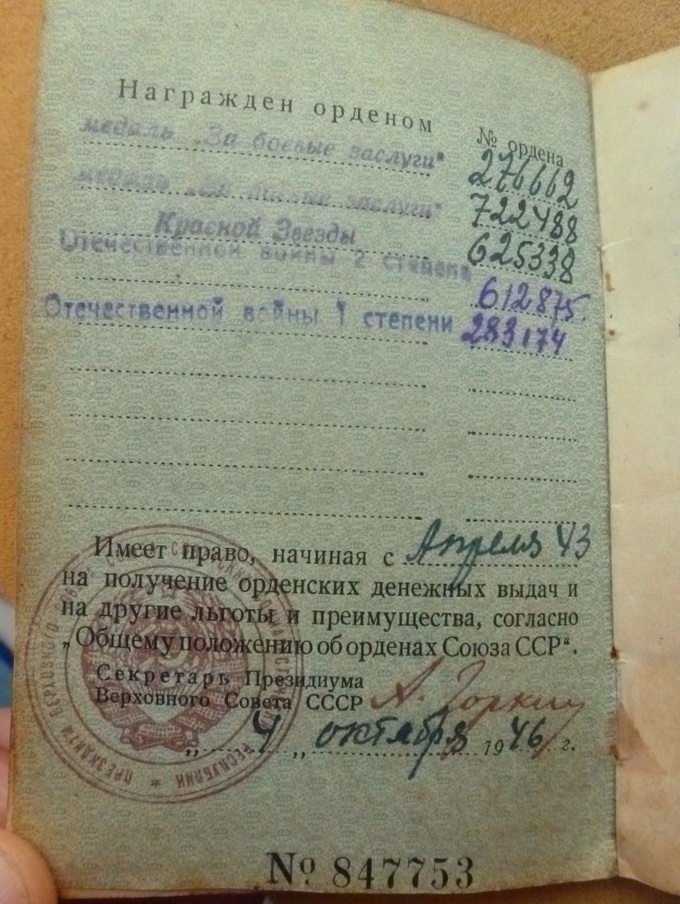 Награжден орденом № ордена
медаль „За боевые заслуги" 276662
медаль „За боевые заслуги" 722488
Красной Звезды 625338
Отечественной войны 2 степени 612875
Отечественной войны 1 степени 283174
Имеет право, начиная с Апреля 43
на получение орденских денежных выдач и
на другие льготы и преимущества, согласно
„Общему положению об орденах Союза ССР".
Секретарь Президиума
Верховного Совета СССР А. Горкин
„4„ октября 1946 г.
ПРЕЗИДИУМ ВЕРХОВНОГО СОВЕТА РЕСПУБЛИК
№ 847753